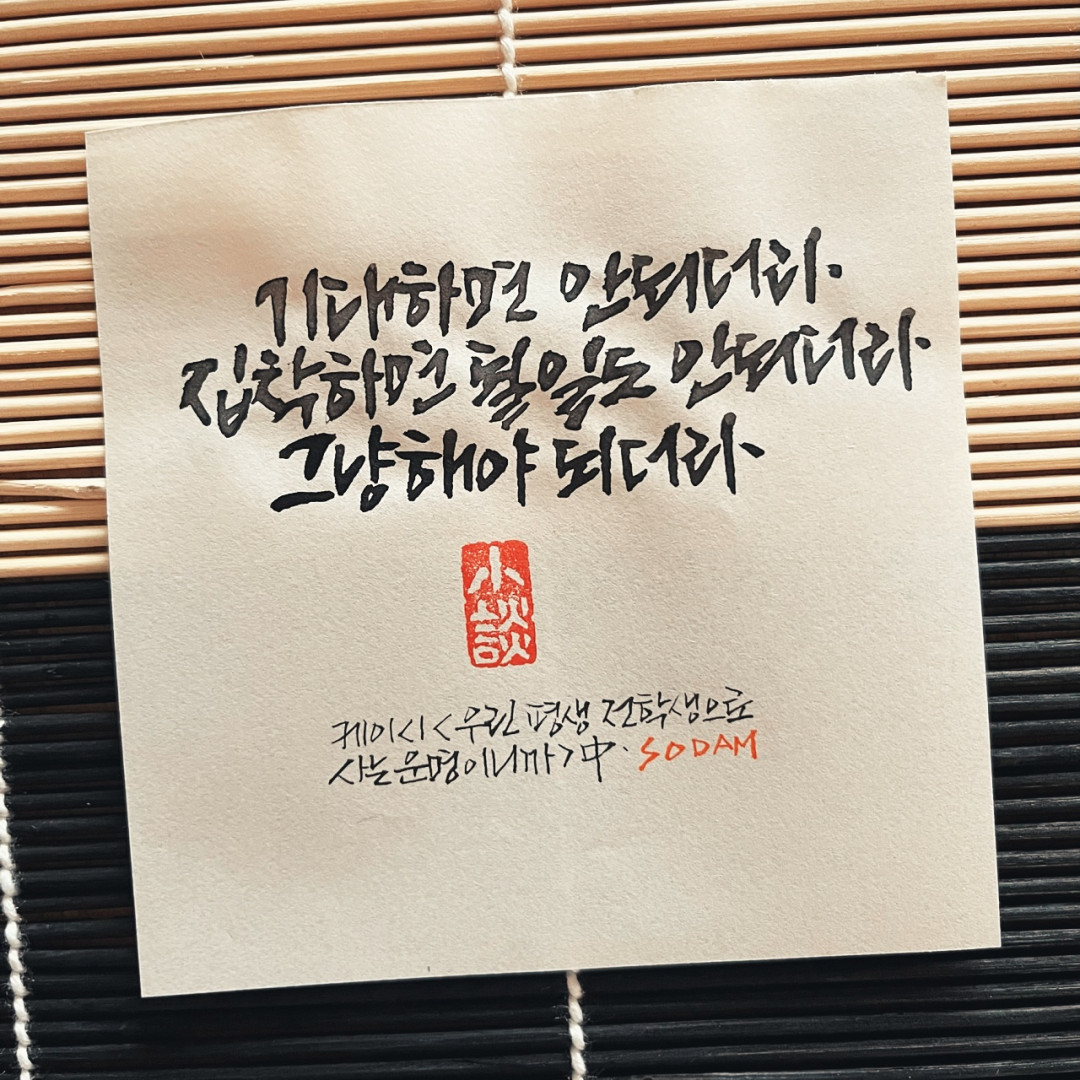 기대하면 안되더라.
집착하면 될일도 안되더라.
그냥해야 되더라.
小談
케이시<우린 평생 전학생으로
사는 운명이니까>中. SODAM